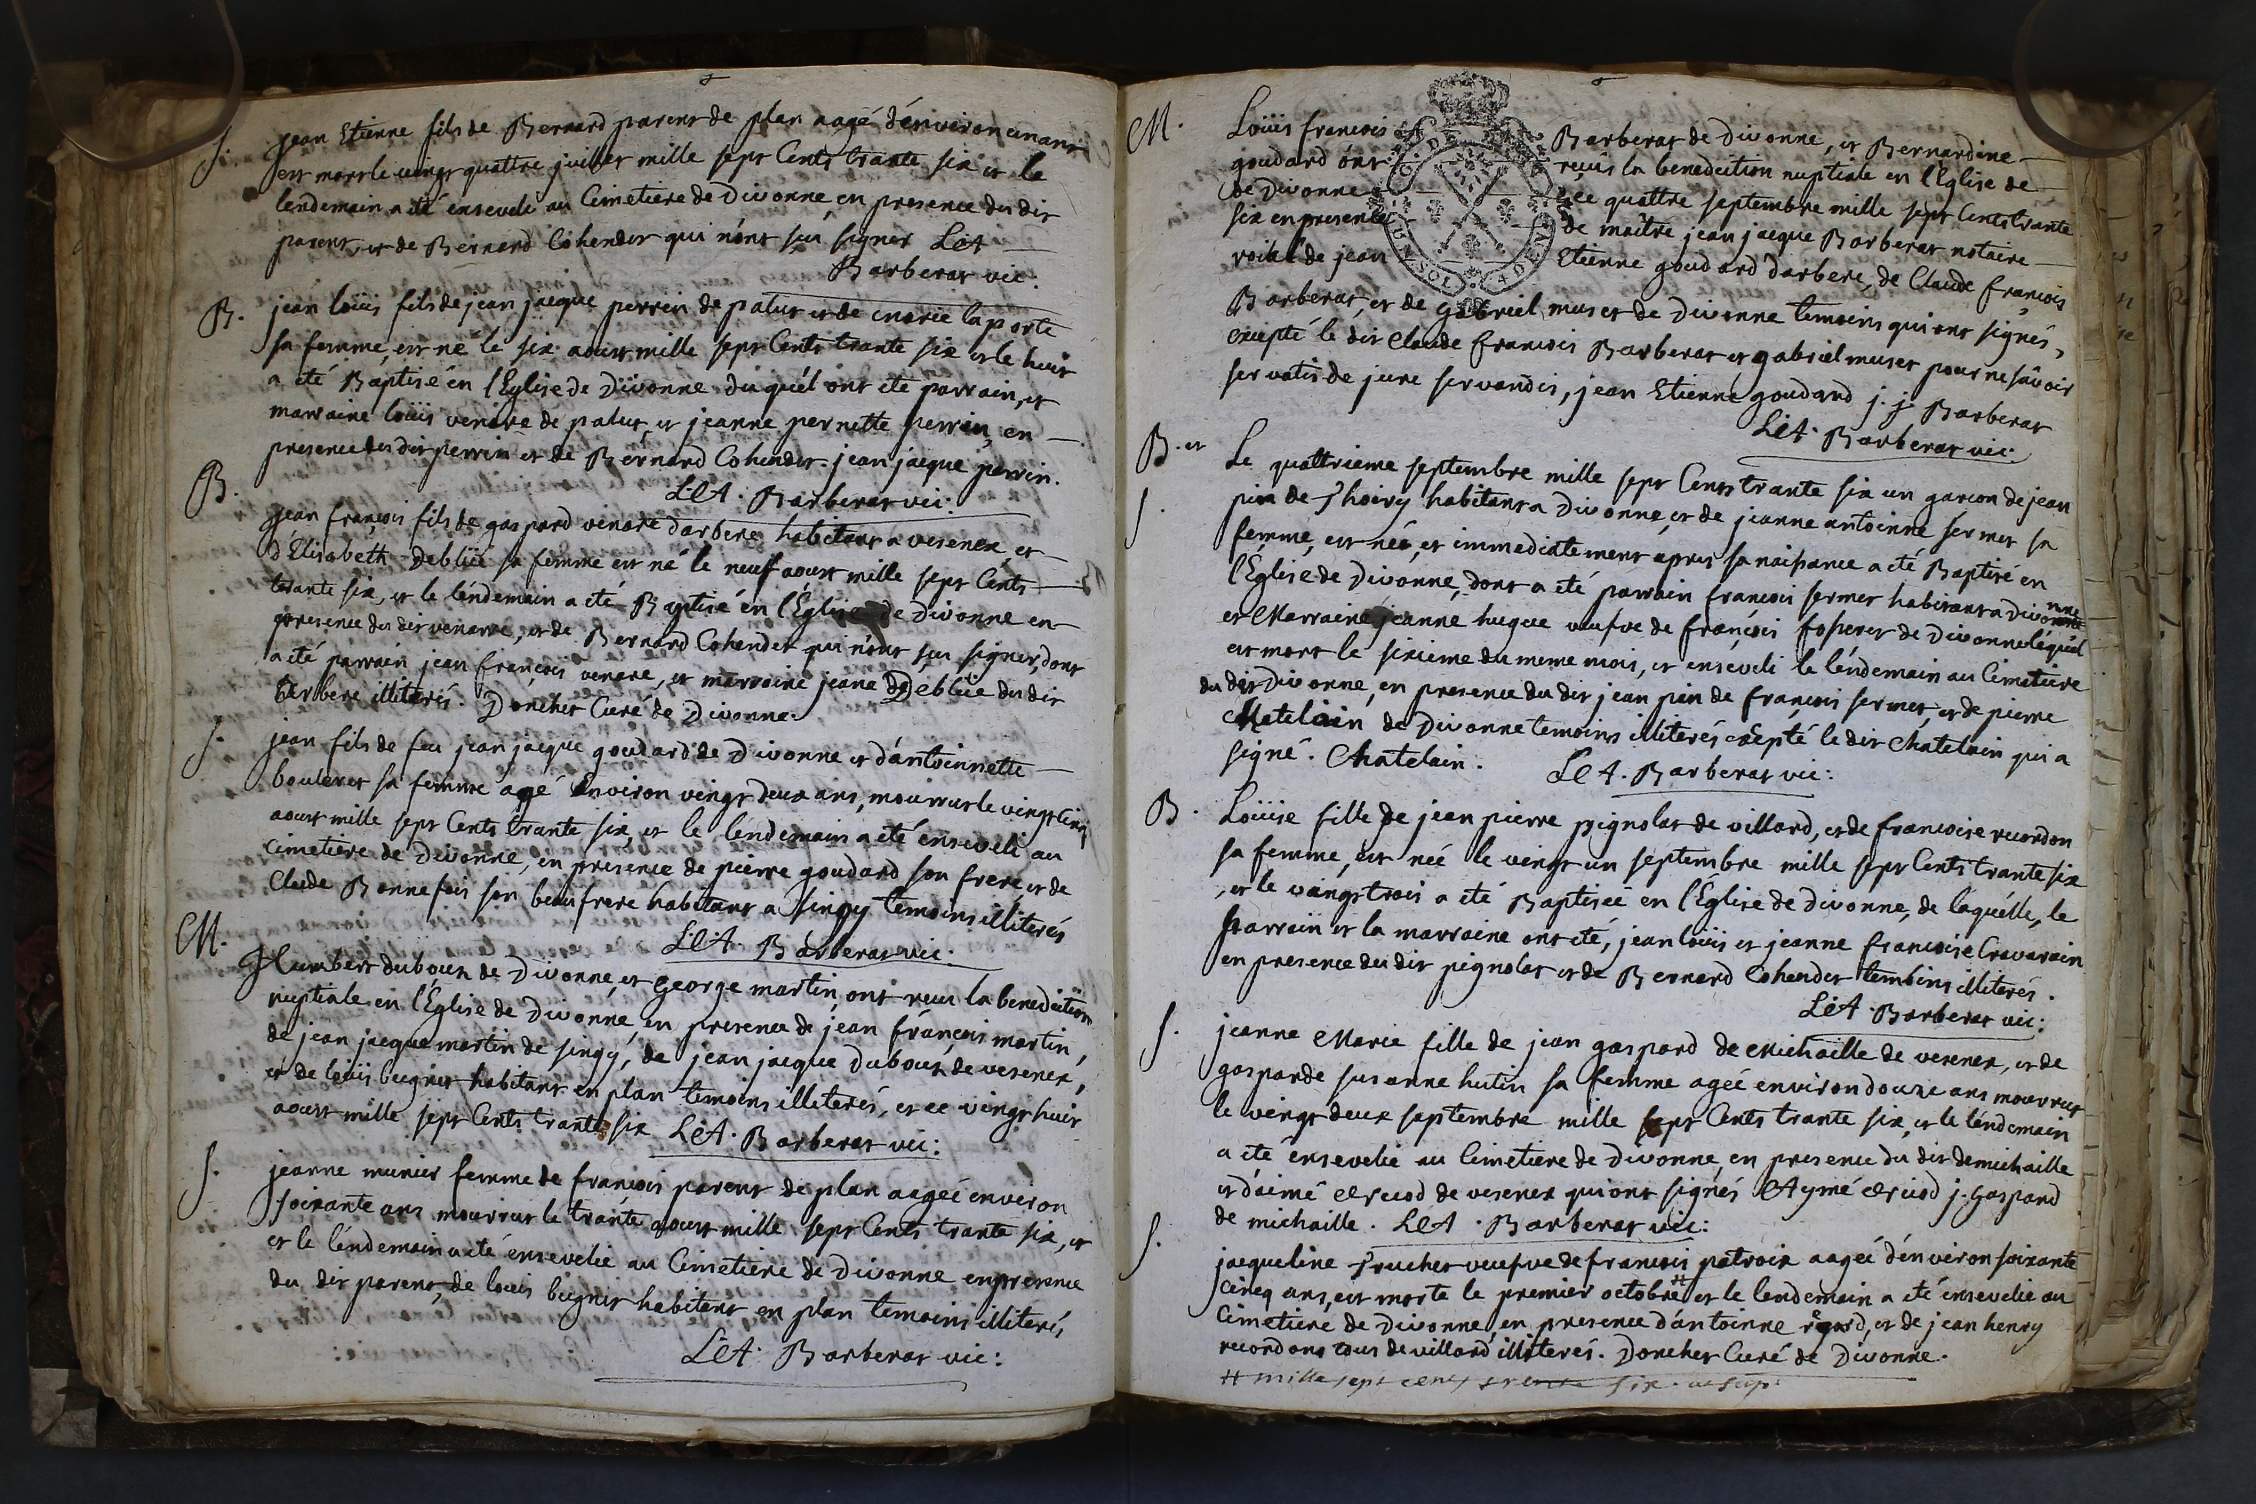 S. Jean Etienne fils de Bernard parent de plan aagé d'énviron un ans
est mort le vingt quattre juillet mille sept Cents trante six et le
lendemain a été enseveli au Cimetiere de Divonne en presence du dit
parent, et de Bernard Cohendet qui n'ont sçu signer
Barberat vic:
B. jean loüis fils de jean jacque perrin de patut et de marie laporte
sa femme, est né le six aoust mille sept Cents trante six et le huit
a été Baptisé én l'Eglise de Divonne duquél ont été parrain, et
marraine loüis venare de patut, et jeanne pernette perrin, en
presence du dit perrin et de Bernard Cohendet. jean jacque perrin.
Barberat vic:
B. Jean françois fils de gaspard venare d'arbere habitant a vesenex et
d'Elisabeth Deblüe sa femme est né le neuf aoust mille sept Cents
trante six, et le léndemain a été Baptisé én l'Eglise de Divonne en
presence du dit venarre, et de Bernard Cohendet qui n'ont sçu signer, dont
a été parrain jean françois venare, et marraine jeane Deblüe du dit
arbere illiterés. Donchet Curé de Divonne.
S. jean fils de feu jean jacque goudard de Divonne et d'antoinnette
bouleret sa femme agé Environ vingt deux ans, mourrut le vingt Cinq
aoust mille sept Cents trante six, et le léndemain a été enseveli au
cimetiere de Divonne, en presence de pierre goudard son frere et de
Claude Bonnefois son beaufrere habitant a singy temoins illiterés
Barberat vic:
M. Humbert duboux de Divonne, et george martin, ont reçu la benediction
nuptiale en l'Église de Divonne, en presence de jean françois martin,
de jean jacque martin de singy, de jean jacque duboux de vesenex,
et de loüis bugnet habitant en plan temoins illiterés, et ce vingt huit
aoust mille sept Cents trante six Barberat vic:
S. jeanne munier femme de françois parent de plan aagée environ
soixante ans mourrut le trante aoust mille sept Cents trante six, et
et le léndemain a été ensevelie au Cimetiere de Divonne en presence
du dit parent, de louis bugnet habitant en plan temoins illiterés,
Barberat vic:
M. Loüis francois Barberat de Divonne, et Bernardine
goudard ont reçus la benediction nuptiale en l'Eglise de
de Divonne ce quattre septembre mille sept Cents trante
six en presence de maître jean jacque Barberat notaire
roial de jean Etienne goudard d'arbere, de Claude françois
Barberat, et de gabriel muset de Divonne temoins qui ont signés,
excepté le dit Claude francois Barberat et gabriel muset pour ne sçavoir
servatis de jure servandis, jean Etienne goudard j. j. Barberat
Barberat vic:
B. et S. Le quattrieme septembre mille sept Cents trante six un garcon de jean
pin de Thoiry habitant a Divonne, et de jeanne antoinne sermet sa
femme, est née, et immediatement apres sa naissance a eté Baptisé en
l'Église de Divonne, dont a été parrain francois sermet habitant a Divonne
et Marraine jeanne huque veufve de françois de Divonne léquél
est mort le sixieme du meme mois, et enseveli le léndemain au Cimetiere
du dit Divonne, en presence du dit jean pin de françois sermet, et de pierre
Chatelain de Divonne temoins illiterés exepté le dit Chatelain qui a
signé. Chatelain. Barberat vic:
B. Loüise fille de jean pierre pignolat de villard, et de francoise recordon
sa femme, est née le vingt un septembre mille sept Cents trante six
, et le vingt trois a été Baptisée en l'Église de Divonne, de laquélle, le
parrain et la marraine ont été, jean loüis et jeanne francoise Cravarain
en presence du dit pignolat et de Bernard Cohendet temoins illiterés.
Barberat vic:
S. jeanne Marie fille de jean gaspard de Michaille de vesenex, et de
gasparde susanne hutin sa femme agée environ douze ans mourrut
le vingt deux septembre mille sept Cents trante six, et le léndemain
a été énsevelie au Cimetiere de Divonne, en presence du dit demichaille
et d'aimé de vesenex qui ont signés Aymé j. Gaspard
de michaille. Barberat vic:
S. jacqueline veufve de francois patroix aagée d'énviron soixante
Cincq ans, est morte le premier octobre # et le lendemain a été ensevelie au
Cimetiere de Divonne, en presence d'antoinne et de jean henry
recordons tous de villard illiterés. Donchet Curé de Divonne.
# mille sept cent trente six